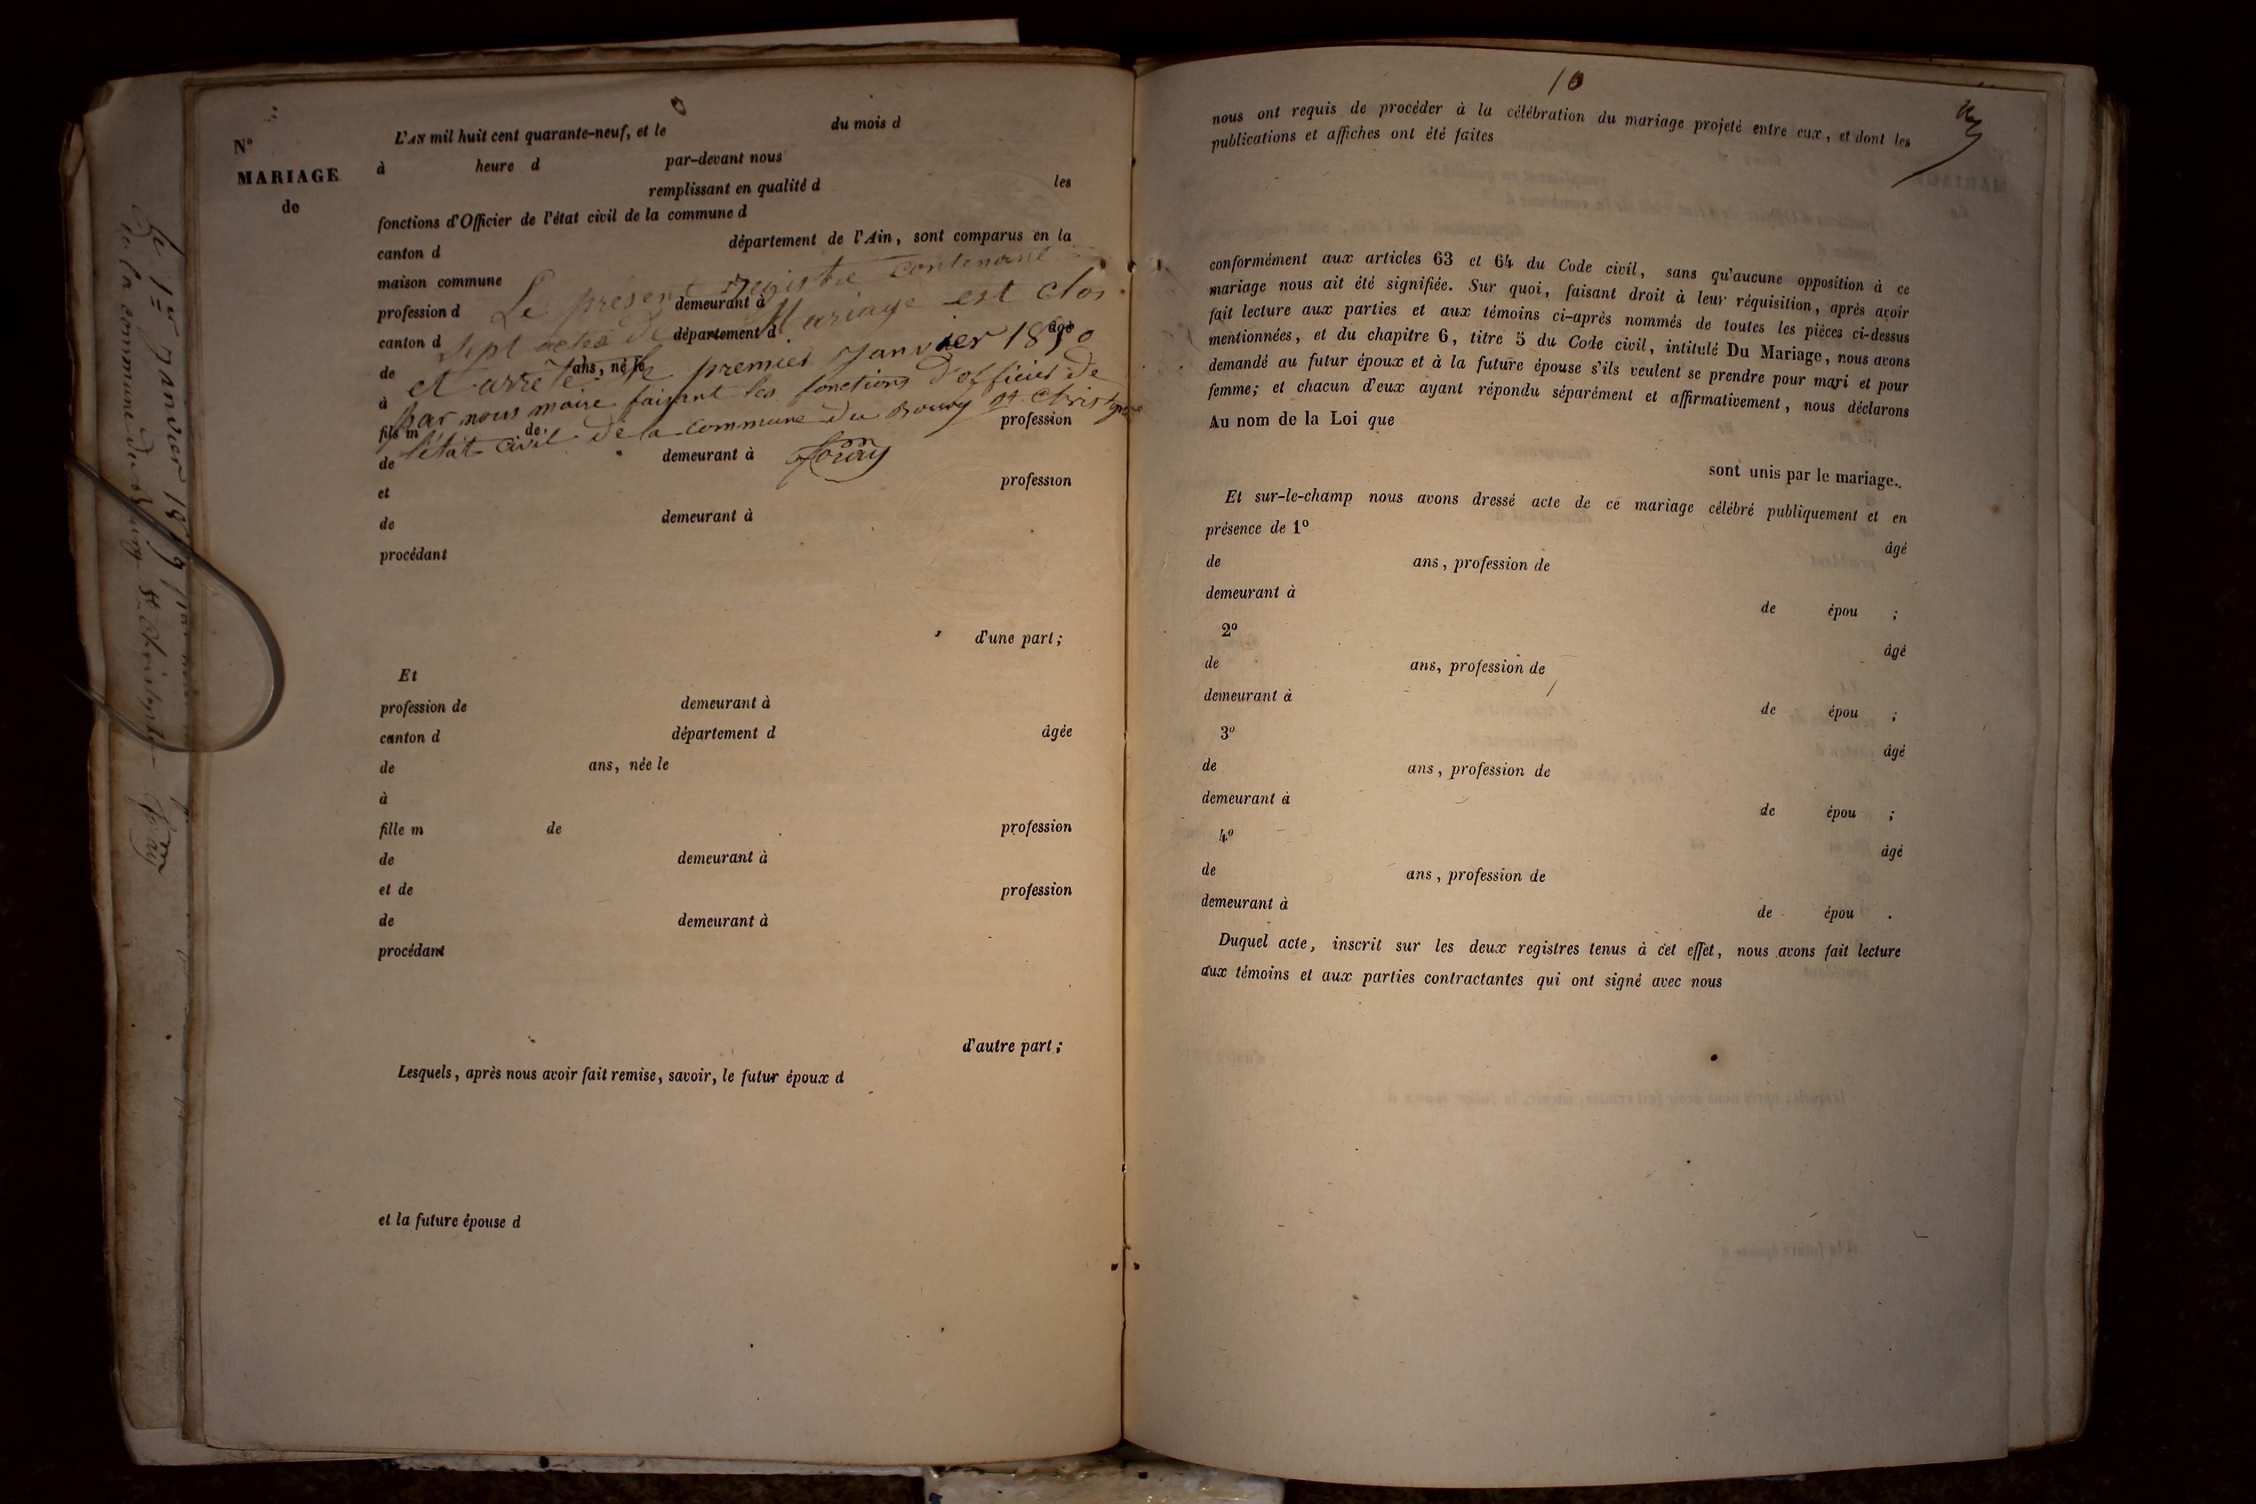 Nº
MARIAGE
de
L'AN mil huit cent quarante-neuf, et le du mois d
à heure d par-devant nous
remplissant en qualité d les
fonctions d'Officier de l'état civil de la commune d
canton d département de l'Ain, sont comparus en la
maison commune
profession d demeurant à
canton d département d âgé
de ans, né le
à
fils m de profession
de demeurant à
et profession
de demeurant à
procédant
Le présent registre contenant
sept actes de Mariage est clos
et arrêté le premier Janvier 1850
par nous maire faisant les fonctions d'officier de
l'état civil de la commune du Bourg St Christophe
d'une part;
Et
profession de demeurant à
canton d département d âgée
de ans, née le
à
fille m de profession
de demeurant à
et de profession
de demeurant à
procédant
d'autre part;
Lesquels, après nous avoir fait remise, savoir, le futur époux d
et la future épouse d
Le 1er Janvier 1849
de la commune du Bourg St Christophe
10
nous ont requis de procéder à la célébration du mariage projeté entre eux, et dont les
publications et affiches ont été faites
conformément aux articles 63 et 64 du Code civil, sans qu'aucune opposition à ce
mariage nous ait été signifiée. Sur quoi, faisant droit à leur réquisition, après avoir
fait lecture aux parties et aux témoins ci-après nommés de toutes les pièces ci-dessus
mentionnées, et du chapitre 6, titre 5 du Code civil, intitulé Du Mariage, nous avons
demandé au futur époux et à la future épouse s'ils veulent se prendre pour mari et pour
femme; et chacun d'eux ayant répondu séparément et affirmativement, nous déclarons
Au nom de la Loi que
sont unis par le mariage.
Et sur-le-champ nous avons dressé acte de ce mariage célébré publiquement et en
présence de 1º âgé
de ans, profession de
demeurant à de épou ;
2º âgé
de ans, profession de
demeurant à de épou ;
3º âgé
de ans, profession de
demeurant à de épou ;
4º âgé
de ans, profession de
demeurant à de épou .
Duquel acte, inscrit sur les deux registres tenus à cet effet, nous avons fait lecture
aux témoins et aux parties contractantes qui ont signé avec nous